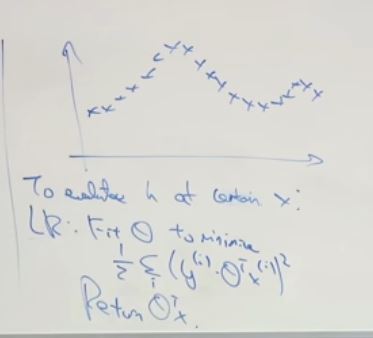 To evaluate h at certain x:
LR: Fit θ to minimize
½ Σᵢ (y⁽ⁱ⁾ - θᵀx⁽ⁱ⁾)²
Return θᵀx.